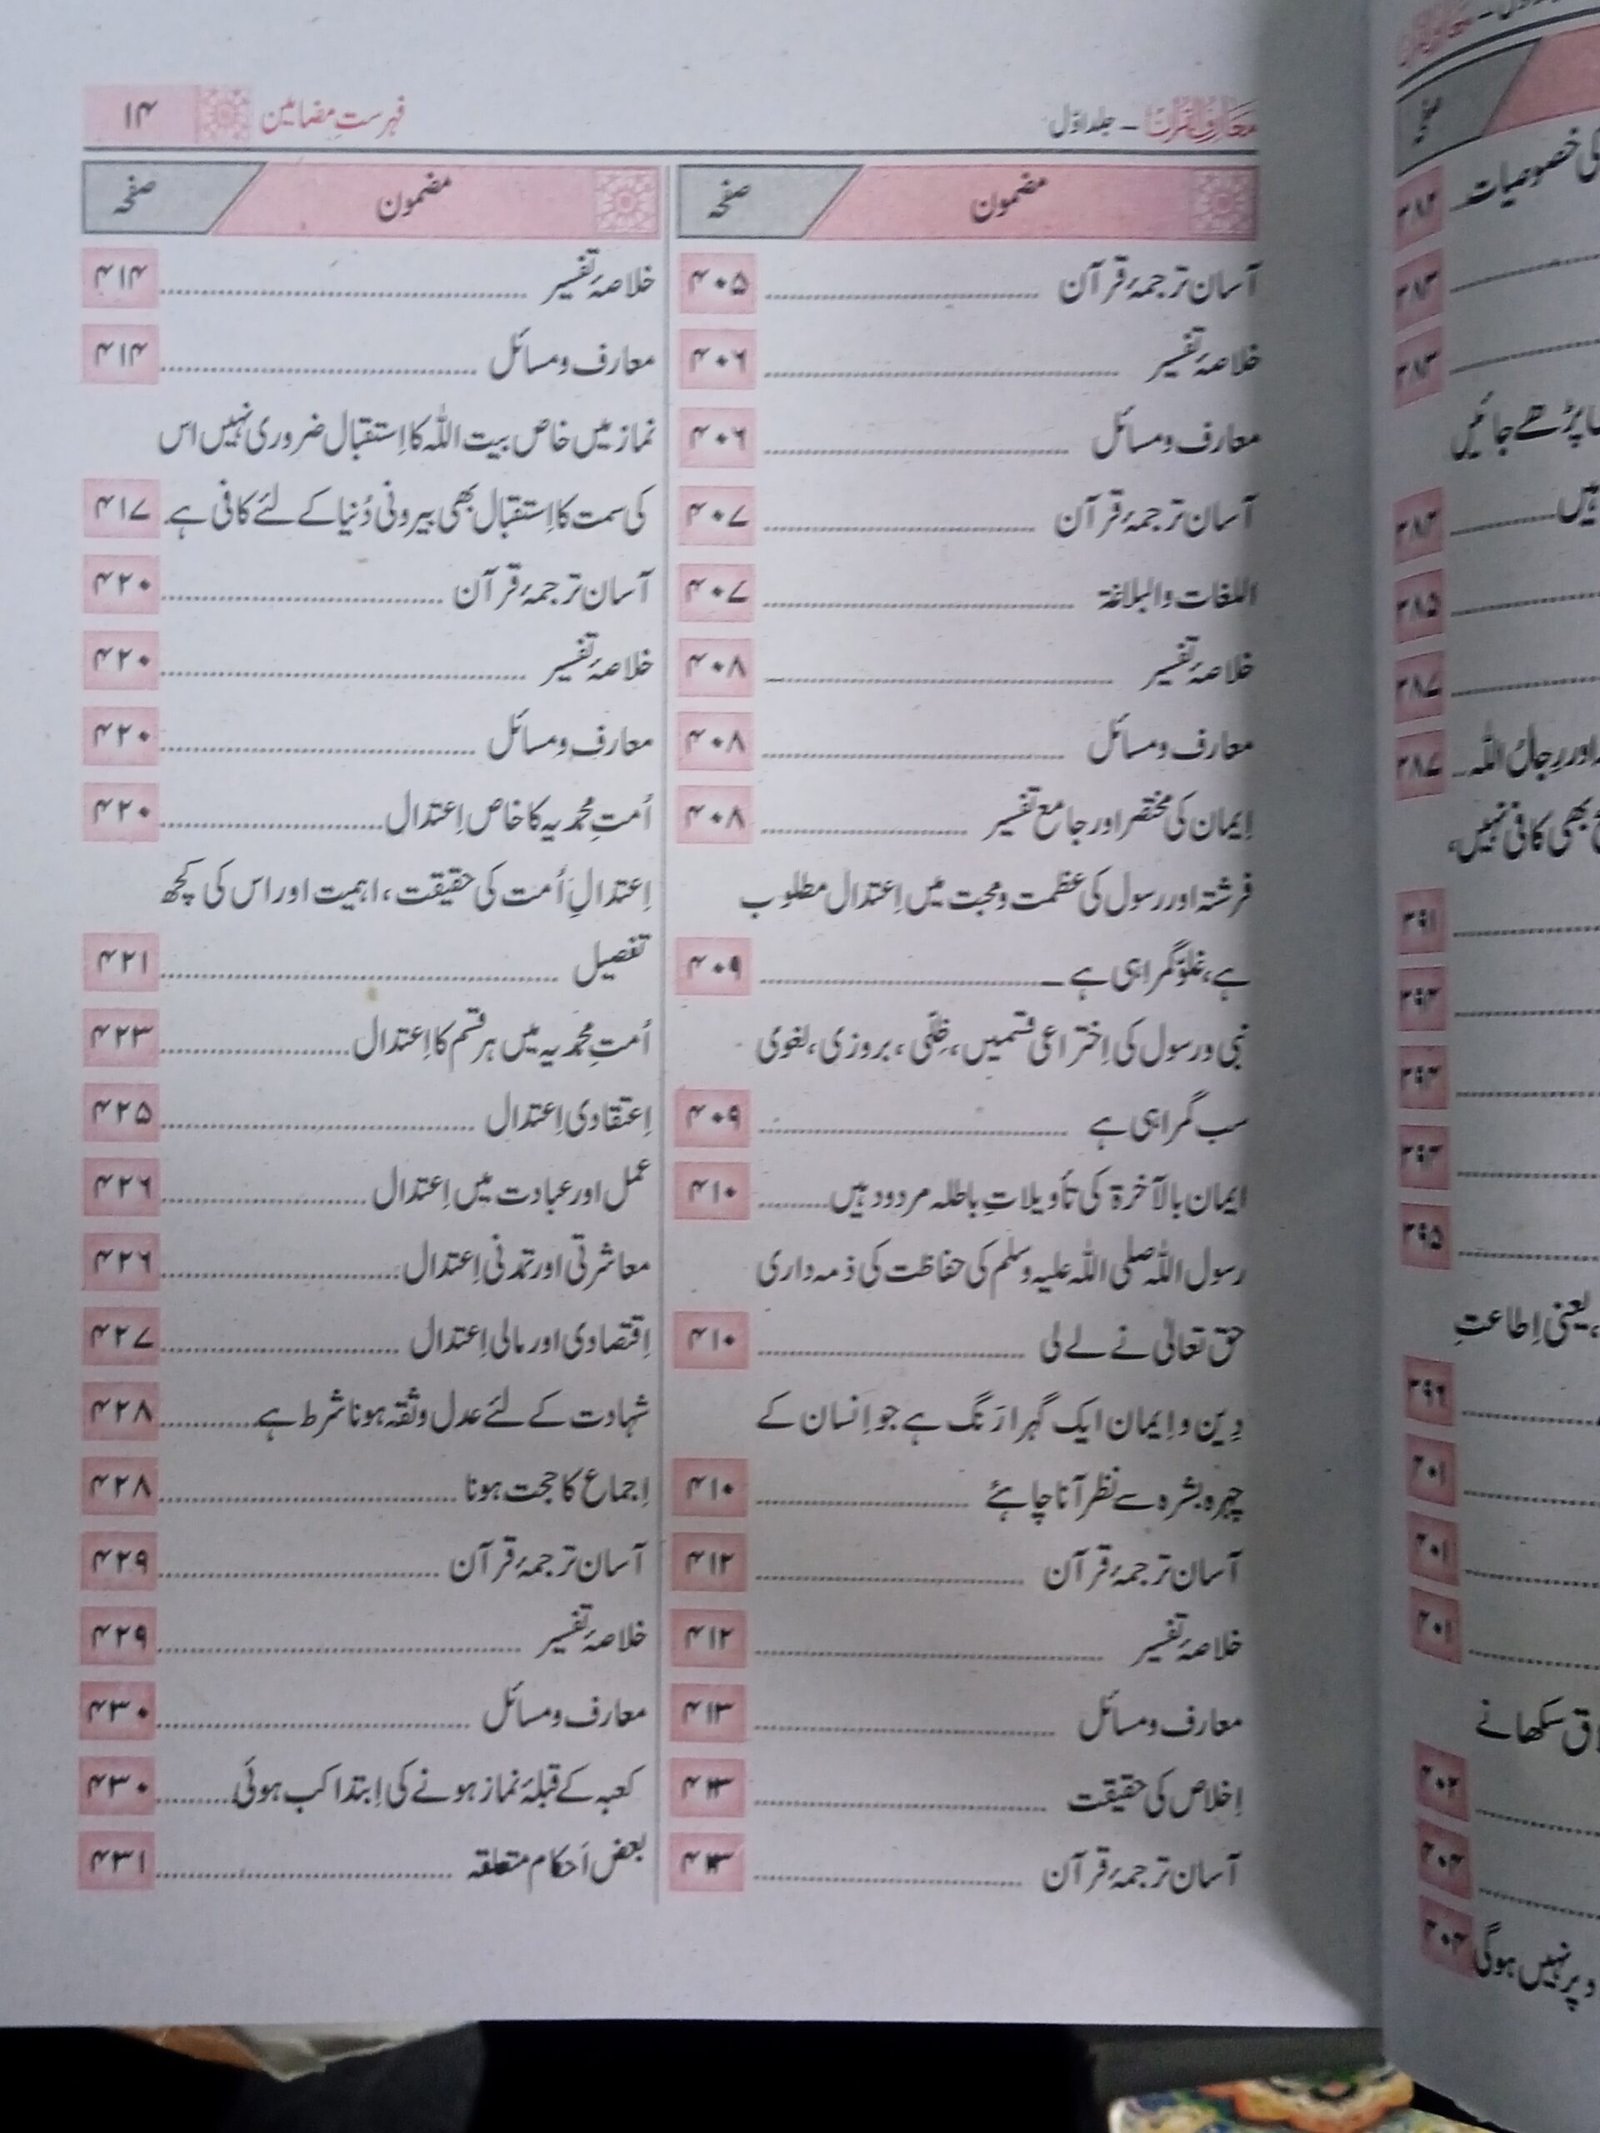 معارف القرآن ـ جلد اوّل
فہرستِ مضامین ۱۴
مضمون صفحہ
آسان ترجمۂ قرآن ۴۰۵
خلاصۂ تفسیر ۴۰۶
معارف و مسائل ۴۰۶
آسان ترجمۂ قرآن ۴۰۷
اللغات والبلاغۃ ۴۰۷
خلاصۂ تفسیر ۴۰۸
معارف و مسائل ۴۰۸
اِیمان کی مختصر اور جامع تفسیر ۴۰۸
فرشتہ اور رسول کی عظمت و محبت میں اِعتدال مطلوب
ہے، غلوّ گمراہی ہے ۴۰۹
نبی و رسول کی اِختراعی قسمیں، ظِلّی، بروزی، لغوی
سب گمراہی ہے ۴۰۹
ایمان بالآخرۃ کی تأویلاتِ باطلہ مردود ہیں ۴۱۰
رسول اللہ صلی اللہ علیہ وسلم کی حفاظت کی ذمہ داری
حق تعالیٰ نے لے لی ۴۱۰
دِین و اِیمان ایک گہرا رَنگ ہے جو اِنسان کے
چہرہ بشرہ سے نظر آنا چاہئے ۴۱۰
آسان ترجمۂ قرآن ۴۱۲
خلاصۂ تفسیر ۴۱۲
معارف و مسائل ۴۱۳
اِخلاص کی حقیقت ۴۱۳
آسان ترجمۂ قرآن ۴۱۳
مضمون صفحہ
خلاصۂ تفسیر ۴۱۴
معارف و مسائل ۴۱۴
نماز میں خاص بیت اللہ کا اِستقبال ضروری نہیں اس
کی سمت کا اِستقبال بھی بیرونی دُنیا کے لئے کافی ہے ۴۱۷
آسان ترجمۂ قرآن ۴۲۰
خلاصۂ تفسیر ۴۲۰
معارف و مسائل ۴۲۰
اُمتِ محمدیہ کا خاص اِعتدال ۴۲۰
اِعتدالِ اُمت کی حقیقت، اہمیت اور اس کی کچھ
تفصیل ۴۲۱
اُمتِ محمدیہ میں ہر قسم کا اِعتدال ۴۲۳
اِعتقادی اِعتدال ۴۲۵
عمل اور عبادت میں اِعتدال ۴۲۶
معاشرتی اور تمدنی اِعتدال ۴۲۶
اِقتصادی اور مالی اِعتدال ۴۲۷
شہادت کے لئے عدل و ثقہ ہونا شرط ہے ۴۲۸
اِجماع کا حجت ہونا ۴۲۸
آسان ترجمۂ قرآن ۴۲۹
خلاصۂ تفسیر ۴۲۹
معارف و مسائل ۴۳۰
کعبہ کے قبلۂ نماز ہونے کی اِبتدا کب ہوئی ۴۳۰
بعض اَحکام متعلقہ ۴۳۱
کی خصوصیات ۳۸۲
۳۸۳
۳۸۳
پڑھے جائیں
ہیں ۳۸۴
۳۸۵
۳۸۷
اور رِجالُ اللہ ۳۸۷
بھی کافی نہیں،
۳۹۱
۳۹۳
۳۹۳
۳۹۴
۳۹۵
، یعنی اِطاعتِ
۳۹۶
۴۰۱
۴۰۱
۴۰۱
سکھانے
۴۰۲
۴۰۳
پر نہیں ہوگی ۴۰۳